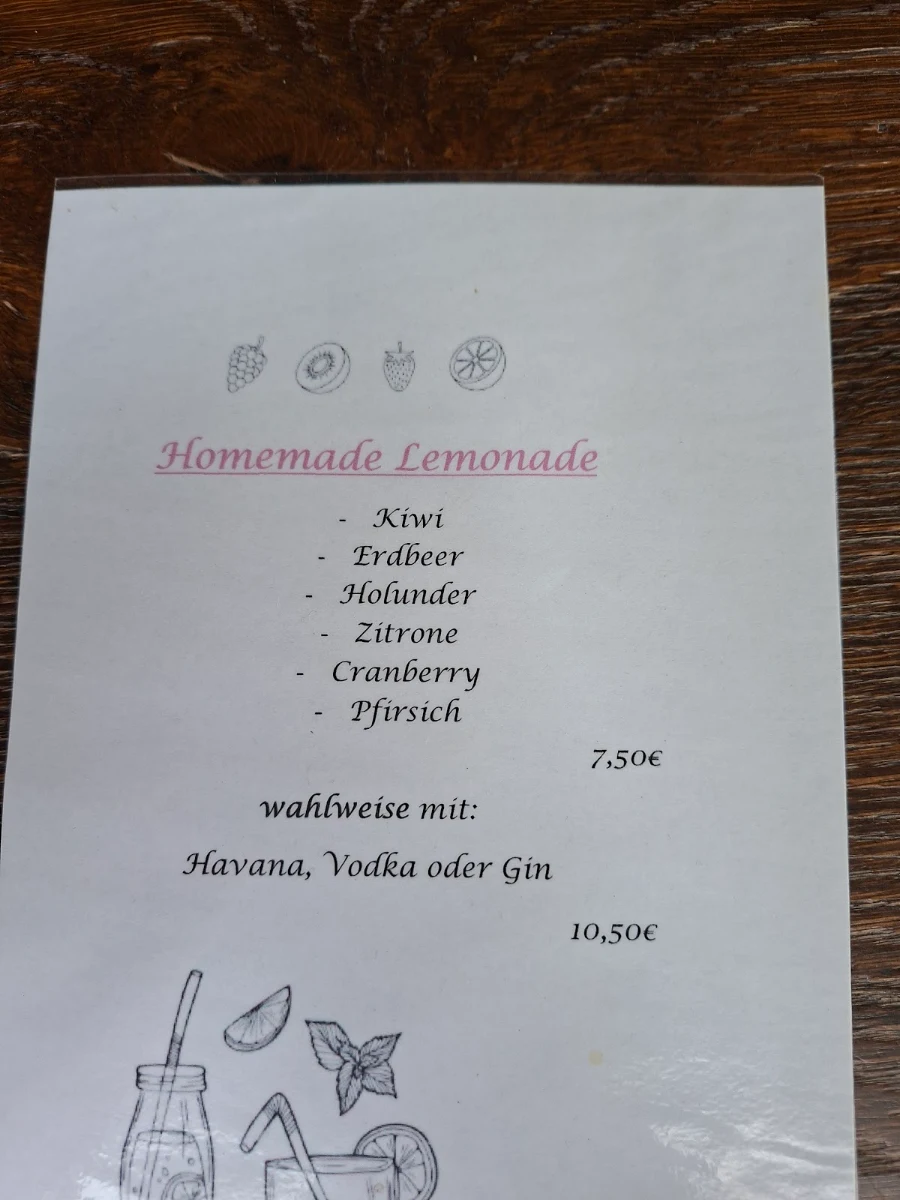 Homemade Lemonade
- Kiwi
- Erdbeer
- Holunder
- Zitrone
- Cranberry
- Pfirsich
7,50€
wahlweise mit:
Havana, Vodka oder Gin
10,50€